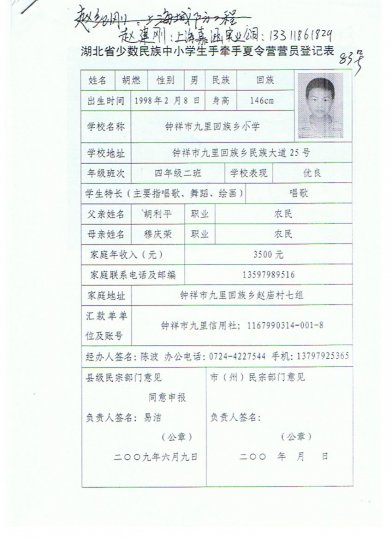 赵建刚:上海嘉涵实业公司:13311861829
湖北省少数民族中小学生手牵手夏令营营员登记表
83号
姓名 胡燃 性别 男 民族 回族
出生时间 1998年2月8日 身高 146cm
学校名称 钟祥市九里回族乡小学
学校地址 钟祥市九里回族乡民族大道25号
年级班次 四年级二班 学校表现 优良
学生特长(主要指唱歌、舞蹈、绘画) 唱歌
父亲姓名 胡利平 职业 农民
母亲姓名 穆庆荣 职业 农民
家庭年收入(元) 3500元
家庭联系电话及邮编 13597989516
家庭地址 钟祥市九里回族乡赵庙村七组
汇款单单
位及账号 钟祥市九里信用社:1167990314-001-8
经办人签名:陈波 办公电话:0724-4227544 手机:13797925365
县级民宗部门意见 市(州)民宗部门意见
同意申报
负责人签名:易洁 负责人签名:
(公章) (公章)
二〇〇九年六月九日 二〇〇 年 月 日